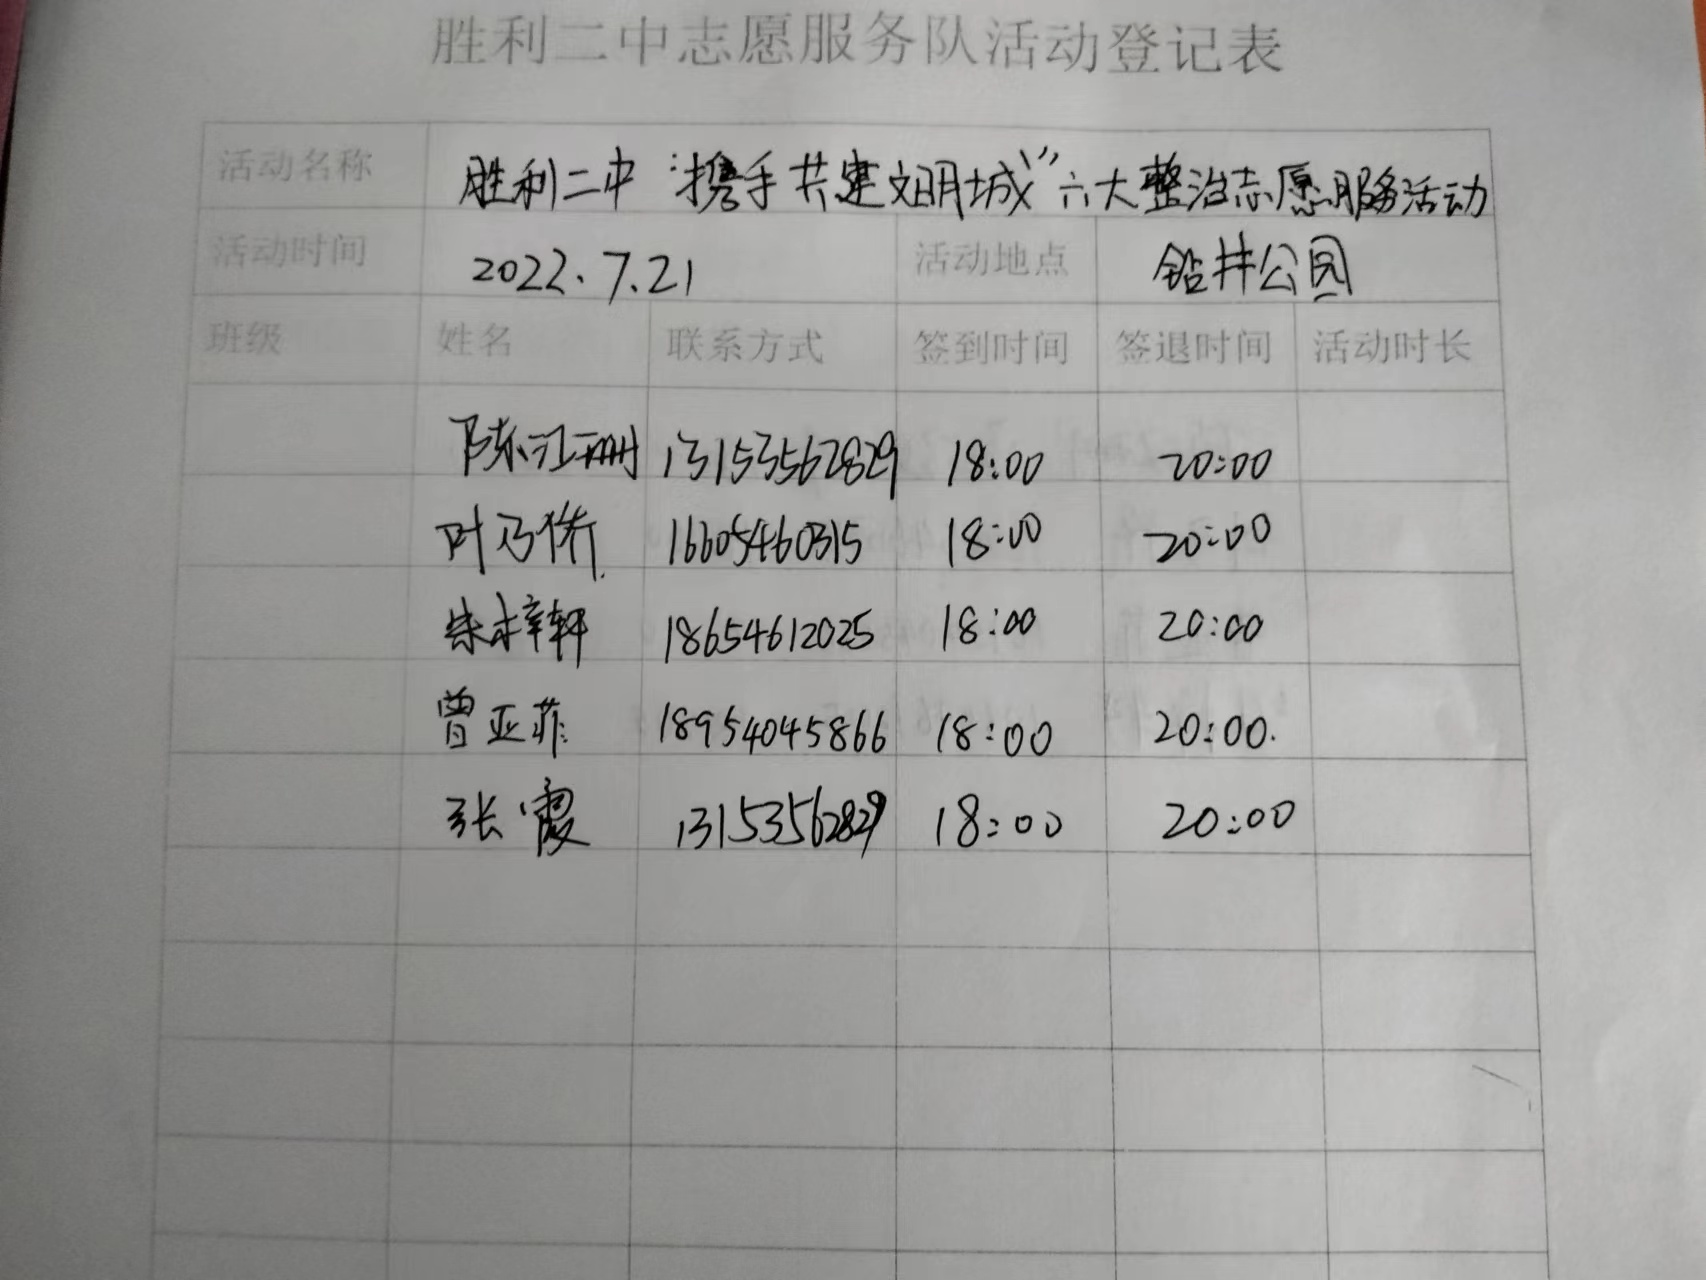 胜利二中志愿服务队活动登记表
活动名称 胜利二中“携手共建文明城”六大整治志愿服务活动
活动时间 2022.7.21 活动地点 钻井公园
班级 姓名 联系方式 签到时间 签退时间 活动时长
陈江珊 13153562829 18:00 20:00
叶乃侨 16605460315 18:00 20:00
朱梓轩 18654612025 18:00 20:00
曾亚菲 18954045866 18:00 20:00.
张霞 13153562829 18:00 20:00